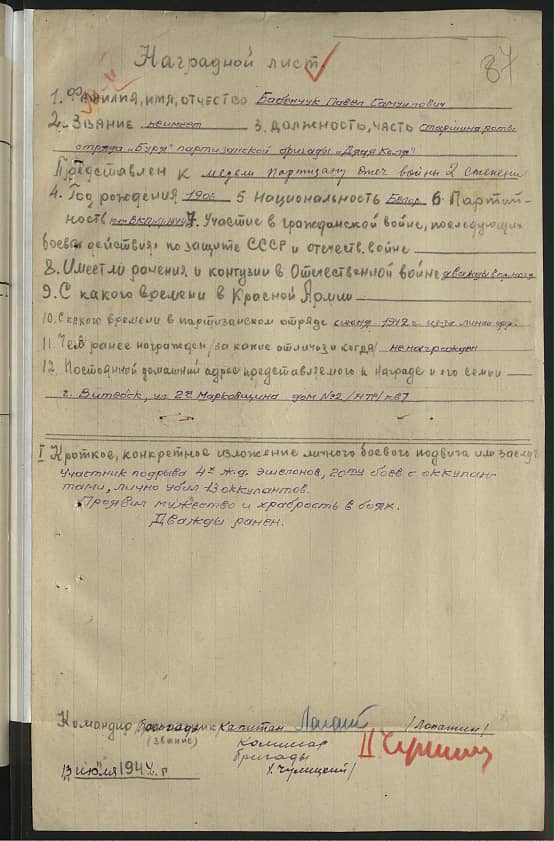 87
Наградной лист
1. Фамилия, имя, отчество Бабенчук Павел Самуилович
2. Звание неимеет 3. Должность, часть старшина роты
отряда „Буря" партизанской бригады „Дядя Коля"
Представлен к медали партизану Отеч войны 2 степени
4. Год рождения 1906 5 Национальность Белор 6 Партий-
ность 7. Участие в гражданской войне, последующих
боевых действиях по защите СССР и отечеств. войне
8. Имеет ли ранения и контузии в Отечественной войне дважды ранен
9. С какого времени в Красной Армии
10. С какого времени в партизанском отряде 1942 г из-за линии фр.
11. Чем ранее награжден /за какие отличия и когда/ ненагражден
12. Постоянный домашний адрес представляемого к награде и его семьи
г. Витебск, ул 2я Марковщина дом №2 /НТР/ кв 7
I Краткое, конкретное изложение личного боевого подвига или заслуг
Участник подрыва 4х ж.д. эшелонов, 20ти боев с оккупан-
тами, лично убил 13 оккупантов.
Проявил мужество и храбрость в боях.
Дважды ранен.
Командир бригады Капитан /Лопатин/
(звание)
комиссар
бригады
/Чулицкий/
13 июля 1944 г